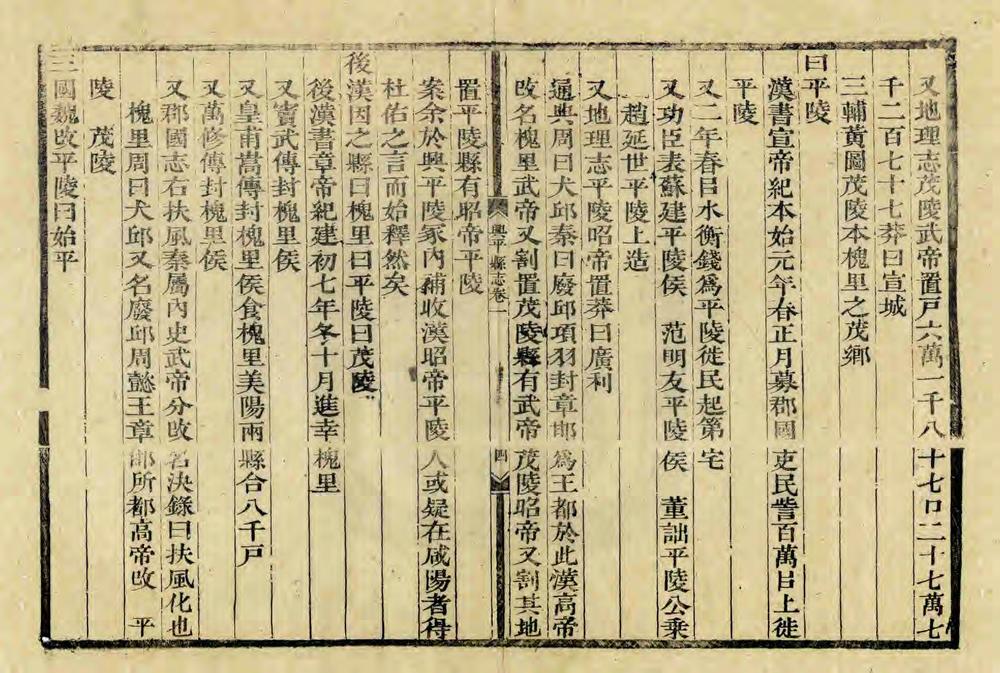 又地理志茂陵武帝置戸六萬一千八十七口二十七萬七
千二百七十七莽曰宣城
三輔黃圖茂陵本槐里之茂鄉
曰平陵
漢書宣帝紀本始元年春正月募郡國吏民訾百萬㠯上徙
平陵
又二年春㠯水衡錢爲平陵徙民起第宅
又功臣表蘇建平陵侯　范明友平陵侯　董詘平陵公乘
趙延世平陵上造
又地理志平陵昭帝置莽曰廣利
通典周曰犬邱秦曰廢邱項羽封章邯爲王都於此漢高帝
改名槐里武帝又割置茂陵縣有武帝茂陵昭帝又割其地
興平縣志卷一　四
置平陵縣有昭帝平陵
案余於興平陵冢內補收漢昭帝平陵人或疑在咸陽者得
杜佑之言而始釋然矣
後漢因之縣曰槐里曰平陵曰茂陵
後漢書章帝紀建初七年冬十月進幸槐里
又竇武傳封槐里侯
又皇甫嵩傳封槐里侯食槐里美陽兩縣合八千戸
又萬修傳封槐里侯
又郡國志右扶風秦屬內史武帝分改名決錄曰扶風化也
槐里周曰犬邱又名廢邱周懿王章邯所都高帝改　平
陵　茂陵
三國魏改平陵曰始平